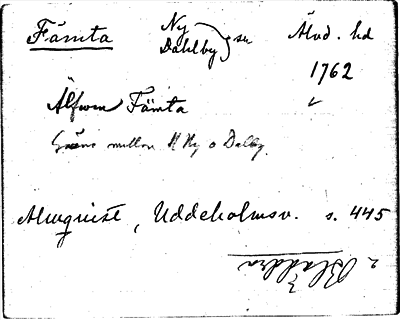 Fämta Ny Dahlby } sn Älvd. hd
1762
Älfven Fämta
Gräns mellan N Ny o Dalby.
Almquist, Uddeholmsv. s. 445